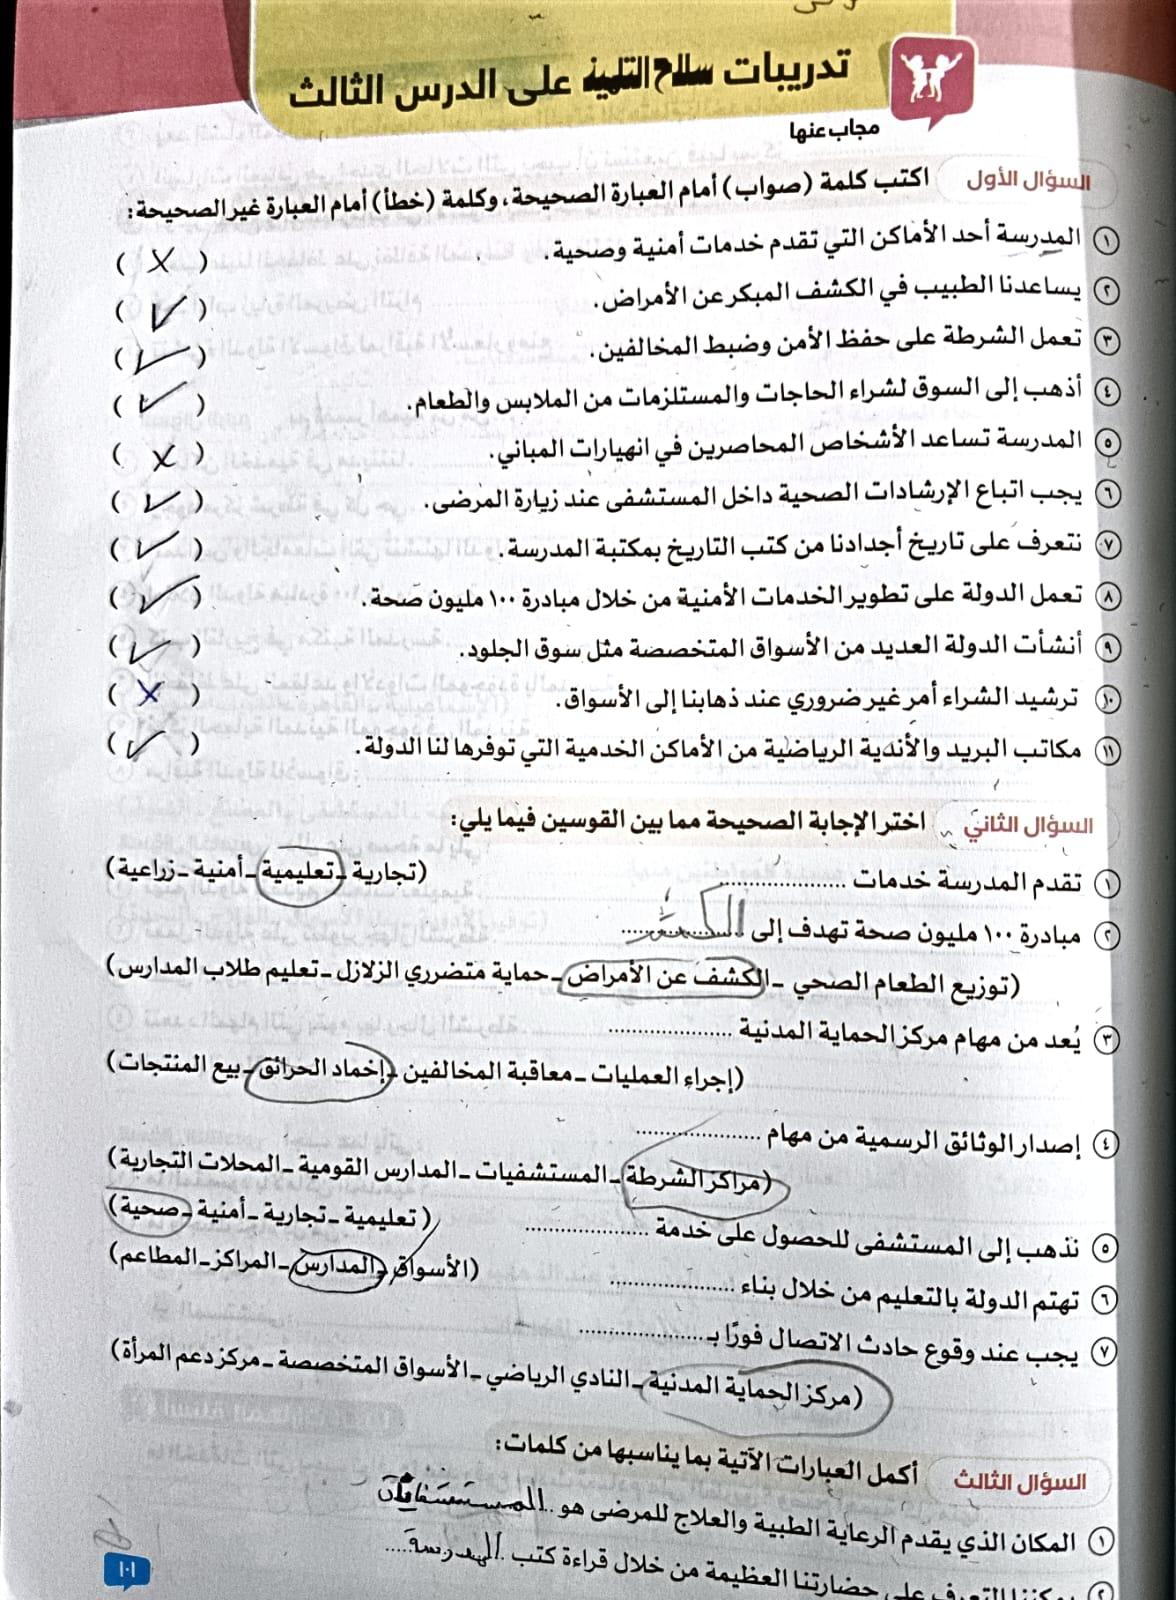 تدريبات سلاح التلميذ على الدرس الثالث
مجاب عنها
السؤال الأول اكتب كلمة (صواب) أمام العبارة الصحيحة، وكلمة (خطأ) أمام العبارة غير الصحيحة:
١ المدرسة أحد الأماكن التي تقدم خدمات أمنية وصحية. ( X )
٢ يساعدنا الطبيب في الكشف المبكر عن الأمراض. ( ✓ )
٣ تعمل الشرطة على حفظ الأمن وضبط المخالفين. ( ✓ )
٤ أذهب إلى السوق لشراء الحاجات والمستلزمات من الملابس والطعام. ( ✓ )
٥ المدرسة تساعد الأشخاص المحاصرين في انهيارات المباني. ( X )
٦ يجب اتباع الإرشادات الصحية داخل المستشفى عند زيارة المرضى. ( ✓ )
٧ نتعرف على تاريخ أجدادنا من كتب التاريخ بمكتبة المدرسة. ( ✓ )
٨ تعمل الدولة على تطوير الخدمات الأمنية من خلال مبادرة ١٠٠ مليون صحة. ( ✓ )
٩ أنشأت الدولة العديد من الأسواق المتخصصة مثل سوق الجلود. ( ✓ )
١٠ ترشيد الشراء أمر غير ضروري عند ذهابنا إلى الأسواق. ( X )
١١ مكاتب البريد والأندية الرياضية من الأماكن الخدمية التي توفرها لنا الدولة. ( ✓ )
السؤال الثاني اختر الإجابة الصحيحة مما بين القوسين فيما يلي:
١ تقدم المدرسة خدمات .................... (تجارية - تعليمية - أمنية - زراعية)
٢ مبادرة ١٠٠ مليون صحة تهدف إلى ....................
(توزيع الطعام الصحي - الكشف عن الأمراض - حماية متضرري الزلازل - تعليم طلاب المدارس)
٣ يُعد من مهام مركز الحماية المدنية ....................
(إجراء العمليات - معاقبة المخالفين - إخماد الحرائق - بيع المنتجات)
٤ إصدار الوثائق الرسمية من مهام ....................
(مراكز الشرطة - المستشفيات - المدارس القومية - المحلات التجارية)
٥ نذهب إلى المستشفى للحصول على خدمة .................... (تعليمية - تجارية - أمنية - صحية)
٦ تهتم الدولة بالتعليم من خلال بناء .................... (الأسواق - المدارس - المراكز - المطاعم)
٧ يجب عند وقوع حادث الاتصال فورًا بـ ....................
(مركز الحماية المدنية - النادي الرياضي - الأسواق المتخصصة - مركز دعم المرأة)
السؤال الثالث أكمل العبارات الآتية بما يناسبها من كلمات:
١ المكان الذي يقدم الرعاية الطبية والعلاج للمرضى هو ..
٢ يمكننا التعرف على حضارتنا العظيمة من خلال قراءة كتب .. المدرسة ....
١٠١